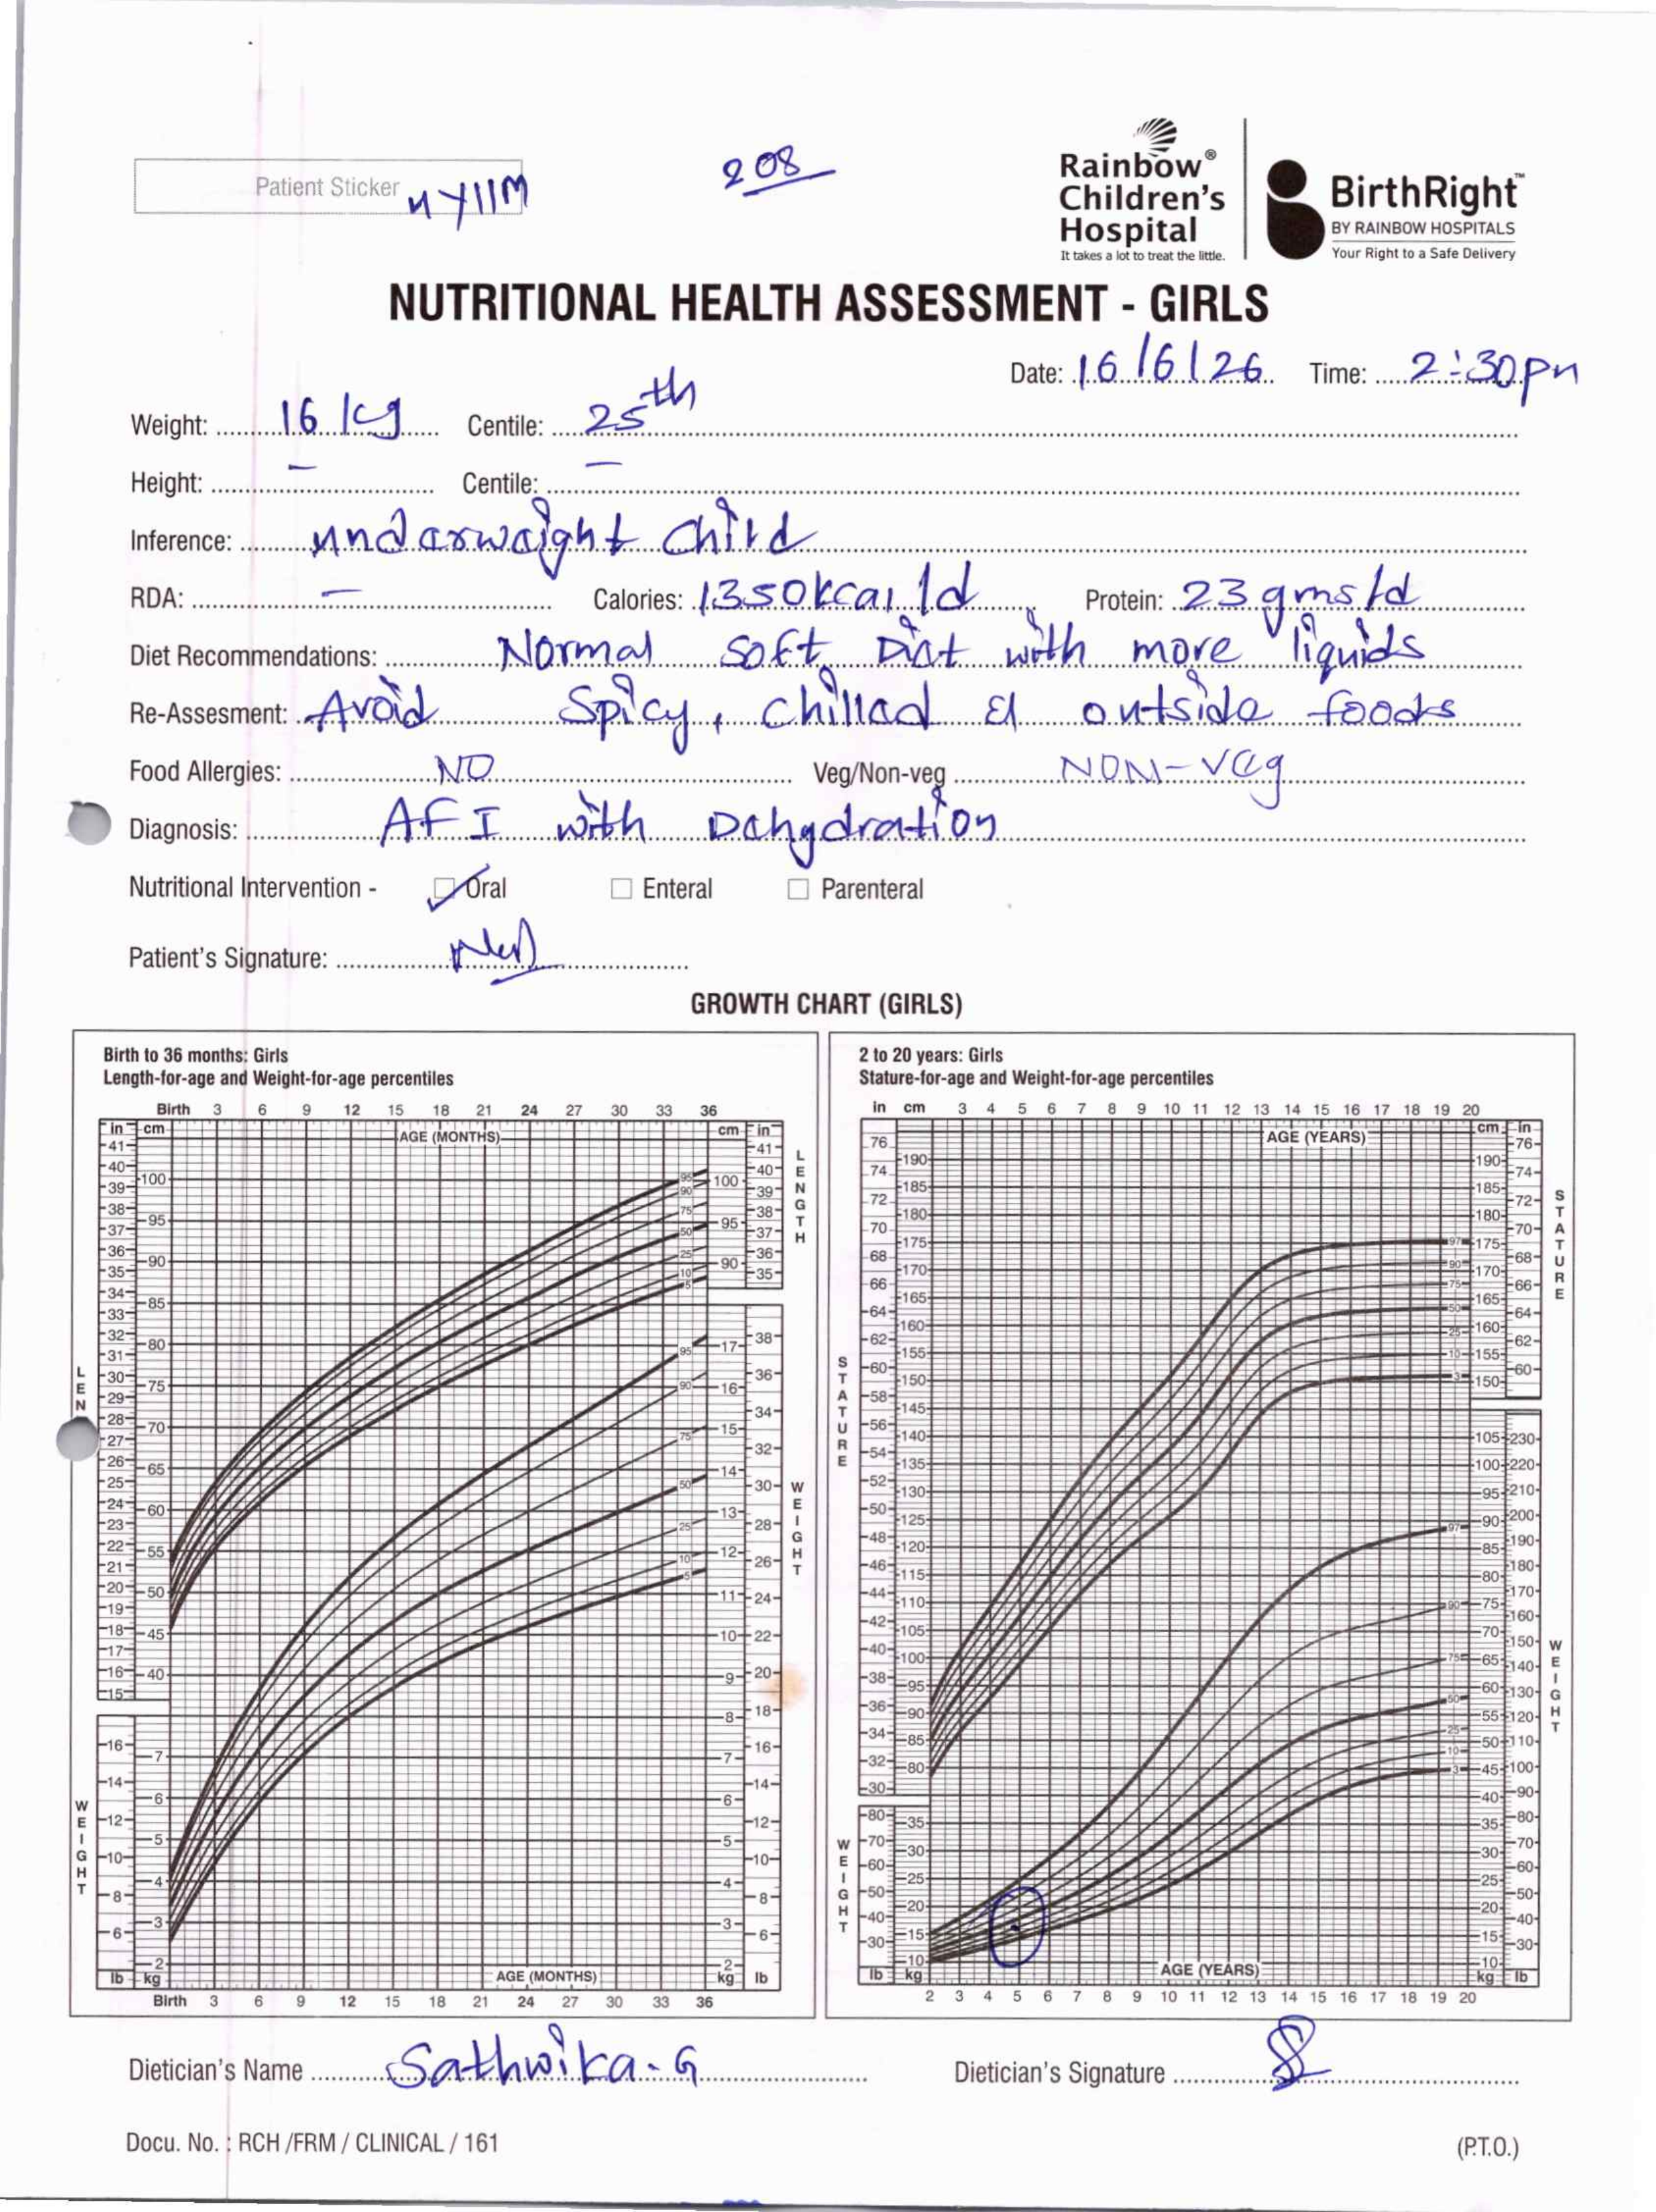 208
Patient Sticker 4Y11M
Rainbow® Children's Hospital
It takes a lot to treat the little.
BirthRight™
BY RAINBOW HOSPITALS
Your Right to a Safe Delivery
NUTRITIONAL HEALTH ASSESSMENT - GIRLS
Date: 16/6/26 Time: 2:30pm
Weight: 16 kg Centile: 25th
Height: – Centile: –
Inference: underweight child
RDA: – Calories: 1350kcal/d Protein: 23gms/d
Diet Recommendations: Normal soft Diet with more liquids
Re-Assesment: Avoid spicy, chilled & outside foods
Food Allergies: NO Veg/Non-veg NON-Veg
Diagnosis: AFI with Dehydration
Nutritional Intervention - Oral Enteral Parenteral
Patient's Signature:
GROWTH CHART (GIRLS)
Birth to 36 months: Girls
Length-for-age and Weight-for-age percentiles
Birth 3 6 9 12 15 18 21 24 27 30 33 36
AGE (MONTHS)
LENGTH
WEIGHT
AGE (MONTHS)
Birth 3 6 9 12 15 18 21 24 27 30 33 36
2 to 20 years: Girls
Stature-for-age and Weight-for-age percentiles
in cm 3 4 5 6 7 8 9 10 11 12 13 14 15 16 17 18 19 20
AGE (YEARS)
STATURE
WEIGHT
AGE (YEARS)
2 3 4 5 6 7 8 9 10 11 12 13 14 15 16 17 18 19 20
Dietician's Name Sathwika.G
Dietician's Signature
Docu. No. : RCH /FRM / CLINICAL / 161
(P.T.O.)